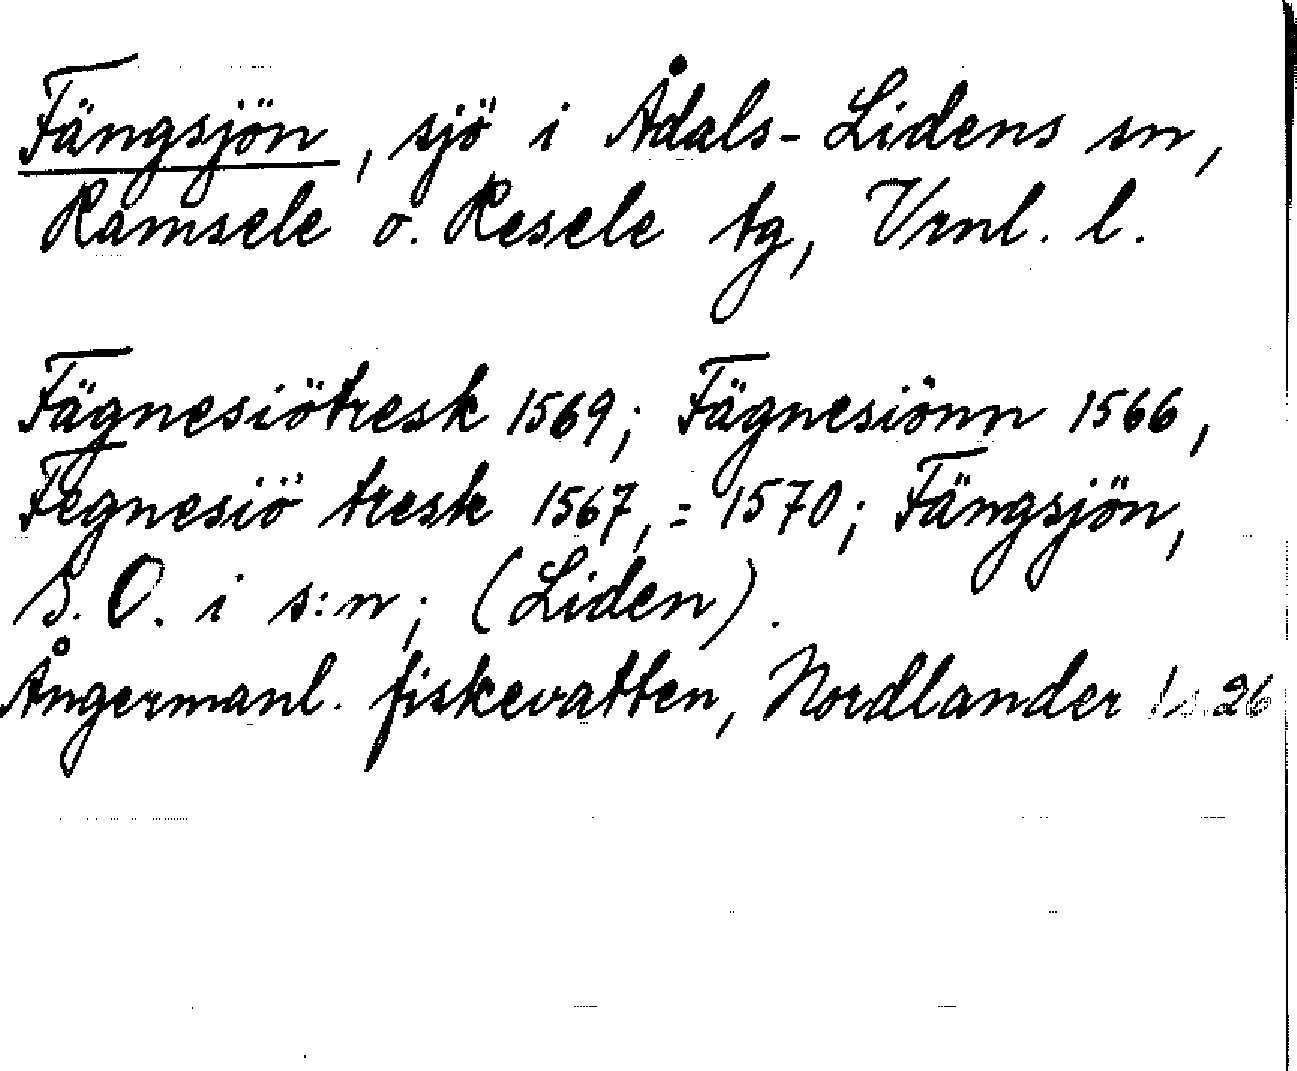 Fängsjön, sjö i Ådals-Lidens sn,
Ramsele o. Resele tg, Vrnl. l.
Fägnesiötresk 1569; Fägnesiönn 1566,
Fegnesiö tresk 1567, = 1570; Fängsjön,
S.O. i s:n; (Liden).
Ångermanl. fiskevatten, Nordlander s. 26